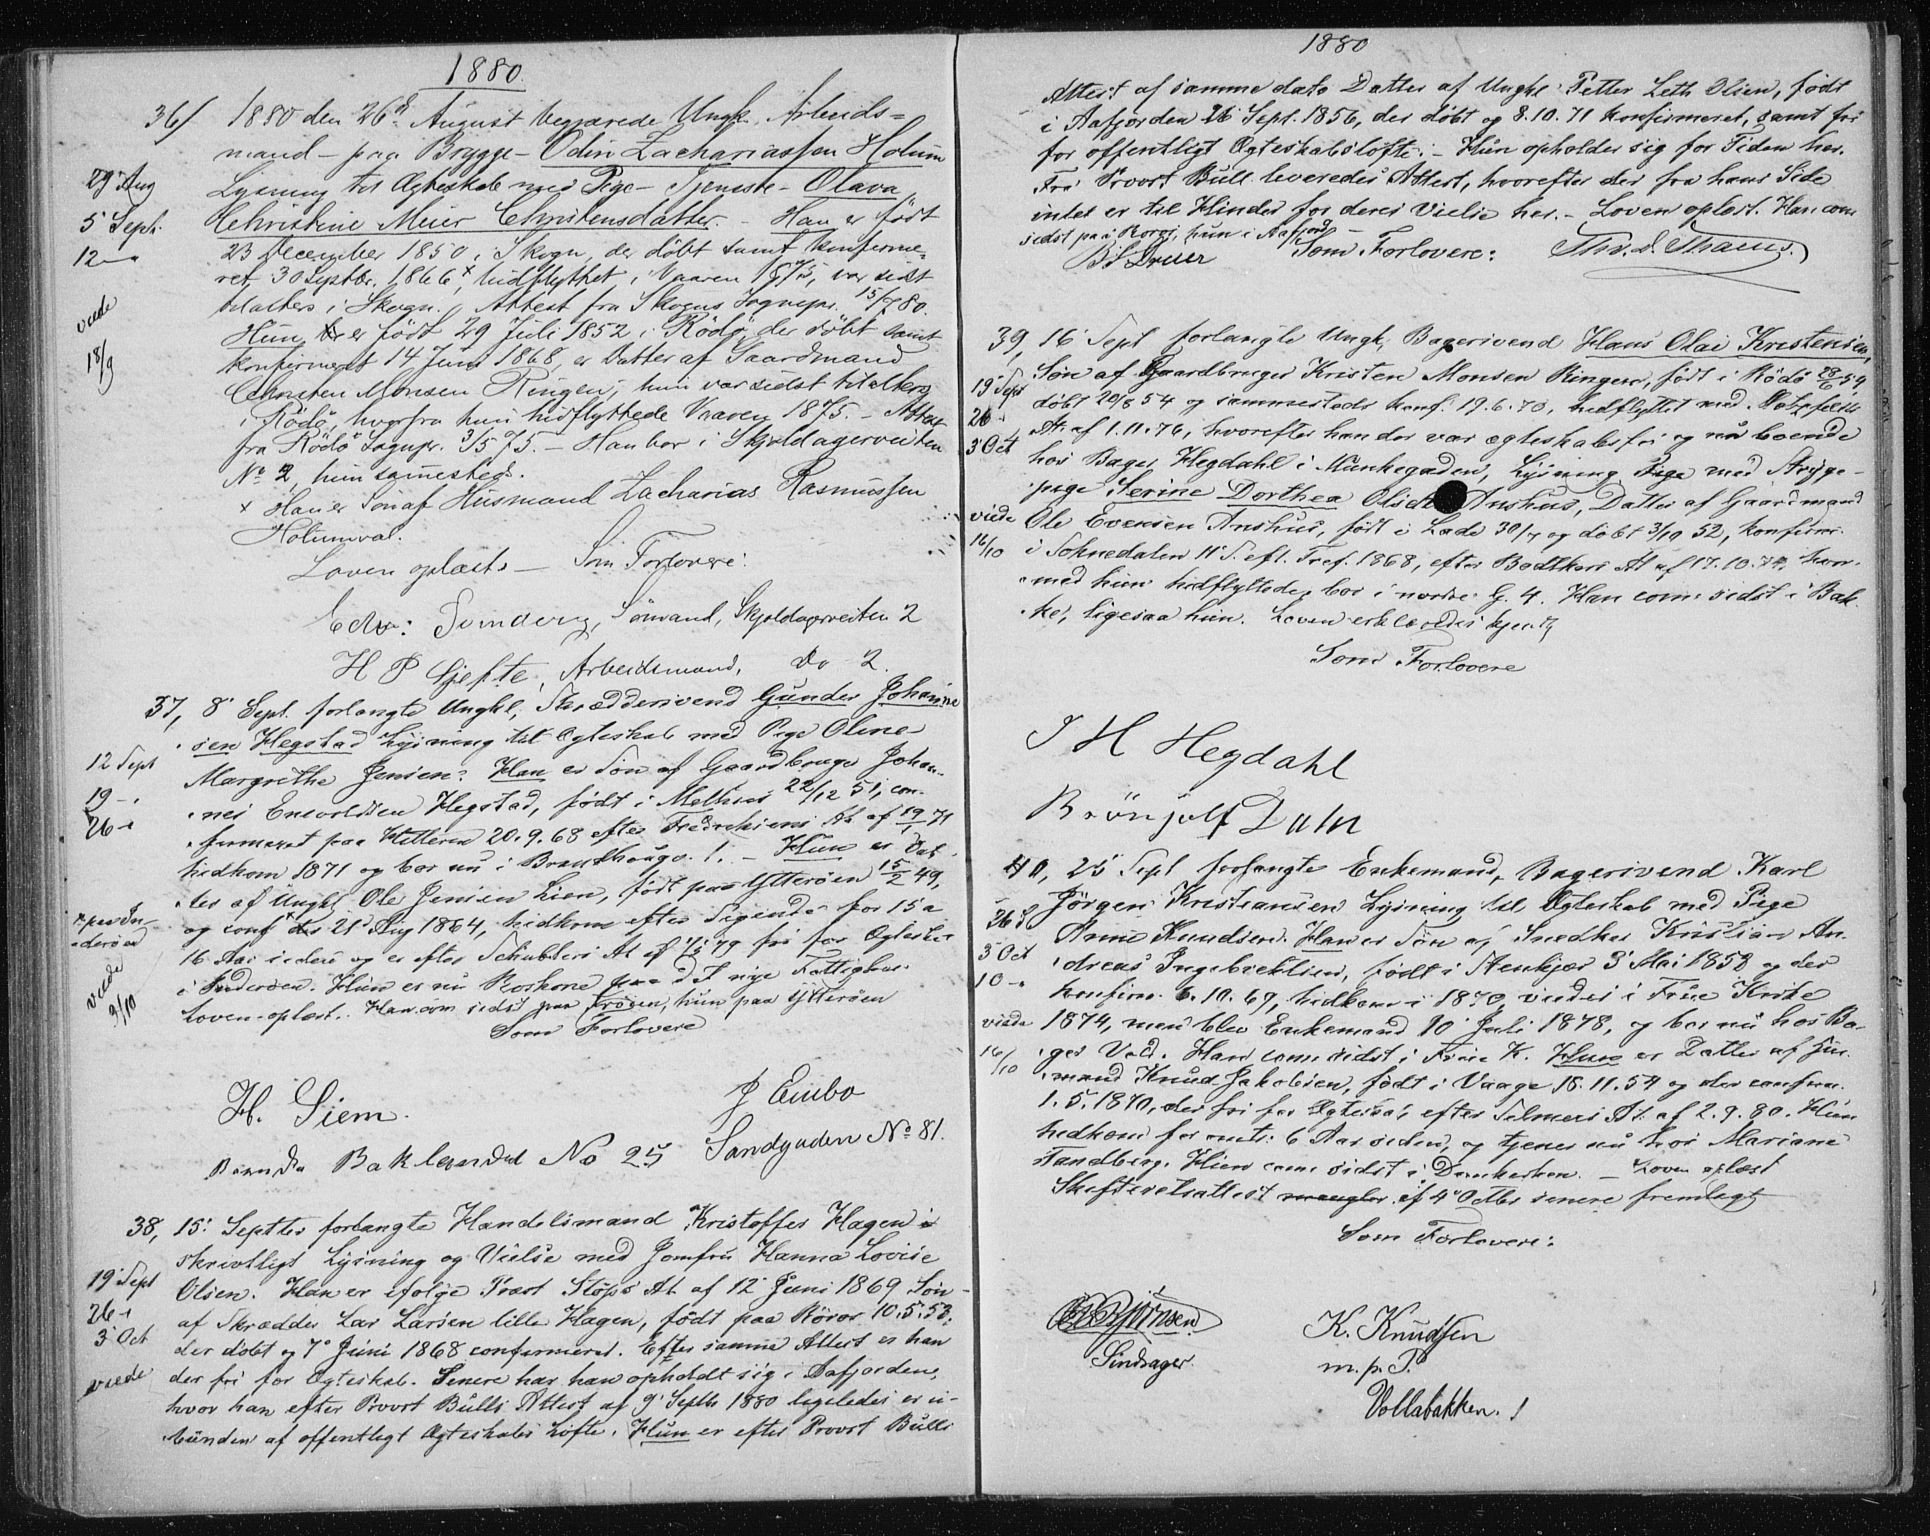 1880.
36/ 1880 den 26de August begjærede Ungk. Arbeids=
mand - paa Brygge - Odin Zachariassen Holum
29 Aug Lysning til Ægteskab med Pige - Tjeneste - Olava
5 Sept. Christine Meier Christensdatter. - Han er født
12 — 23 December 1850 i Skogn, der döbt samt konfirme-
ret 30 Septbr. 1866 x, hidflyttet i Vaaren 1875, var sidst
tilalters i Skogn. Attest fra Skogns Sognepr. 15/7 80.
viede Hun er født 29 Juli 1852 i Rödö, der döbt samt
18/9 konfirmeret 14 Juni 1868, er Datter af Gaardmand
Christen Monsen Ringen; hun var sidst tilalters
i Rödö, hvorfra hun hidflyttede Vaaren 1875. - Attest
fra Rödö Sognpr. 3/5 75. - Han bor i Skjoldagerveiten
No 2, hun samesteds.
x Han er Søn af Husmand Zacharias Rasmussen
Holumval.
Loven oplæst. — Som Forlovere:
Edv: Sömand, Skjoldagerveiten 2
H P Gjefte, Arbeidsmand, do 2.
37, 8 Sept. forlangte Ungkl, Skræddersvend Gunder Johanne
sen Hegstad Lysning til Ægteskab med Pige Oline
12 Sept Margrethe Jensen. Han er Søn af Gaardbruger Johan-
19 - nes Enevoldsen Hegstad, født i Melhus 22/12 51, con-
26 - firmeret paa Hitteren 20.9.68 efter Fredriksens At. af 19/1 71
hidkom 1871 og bor nu i 1. - Hun er Dat
ter af Ungkl Ole Jensen Lien, født paa Ytterøen 15/2 49,
x paa In- og conf x 21 Aug 1864, hidkom efter Sigende for 15 a
derøen 16 Aar siden og er efter Schublers At af 79 fri for Ægteska
viede i Inderøen. Hun er nu paa det nye Fattighus.
3/10 Loven oplæst. Han com sidst paa Frosen, hun paa Ytterøen
Som Forlovere
H. Siem. J Embo
Bakklandet No 25 Sandgaden No 81.
38, 15 Septbr forlangte Handelsmand Kristoffer Hagen
skrivtligt Lysning og Vielse med Jomfru Hanna Lovise
19 Sept Olsen. Han er ifølge Præst Støps At af 12 Juni 1869 Søn
26 - af Skrædder Lars Larsen lille Hagen, født paa Röros 10.5.53,
3 Oct der döbt og 7 Juni 1868 confirmeret. Efter samme Attest er han
viede der fri for Ægteskab. Senere har han opholdt sig i Aafjorden,
hvor han efter Provst Bulls Attest af 9 Septb 1880 ligeledes er u-
bunden af offentligt Ægteskabs Løfte. Hun er efter Provst Bulls
1880
Attest af samme dato Datter af Ungkl. Petter Leth Olsen, født
i Aafjorden 26 Sept. 1856, der döbt og 8.10.71 konfirmeret, samt fri
for offentligt Ægteskabsløfte. - Hun opholder sig for Tiden her.
Fra Provst Bull leveredes Attest, hvorefter der fra hans Side
intet er til Hinder for deres Vielse her. - Loven oplæst. Han com
sidst paa Roros, hun i Aafjord —
Som Forlovere:
39, 16 Sept forlangte Ungk, Bagersvend Hans Olai Kristensen,
19 Sept Søn af Gaardbruger Kristen Monsen Ringen, født i Rödö 54
26 - döbt 20/8 54 og sammesteds konf. 19.6.70, hidflyttet med
3 Oct At. af 1.11.76, hvorefter han der var ægteskabsfri og nu boende
hos Bager Hegdahl i Munkegaden, Lysning med Stryge-
pige Serine Dorthea Olsdt Anshus, Datter af Gaardmand
viede Ole Evensen Anshus, født i Lade 30/7 og döbt 3/10 52, konfirm.
16/10 i Soknedalen 11 S. eft. Tref. 1868, efter At af 17.10.74, hvor-
med hun hidflyttede, bor i nordre G. 4. Han com: sidst i Bak-
ke, ligesaa hun. Loven erklæredes kjendt
Som Forlovere
J H Hegdahl
Brönjolf Dahl
40, 25 Sept forlangte Enkemand, Bagersvend Karl
Jörgen Kristiansen Lysning til Ægteskab med Pige
26 S Anne Knudsen. Han er Søn af Snedker Kristian An-
3 Oct dreas Ingebrektsen, født i Stenkjær 3 Mai 1853 og der
10 - konfirm. 6.10.69, hidkom i 1870, viedes i Frue Kirke
viede 1874, men blev Enkemand 10 Juli 1878, og bor nu hos Ba-
16/10 ger Vold. Han com sidst i Frue K. Hun er Datter af Hus-
mand Knud Jakobsen, født i Vaage 18.11.54 og der confirm.
1.5.1870, der fri for Ægteskab efter Selmers At. af 2.9.80. Hun
hidkom for omtr. 6 Aar siden, og tjener nu hos Mariane
Sandberg. Hun com sidst i Domkirken. — Loven oplæst
Skifteretsattest mangler af 4 Octbr senere fremlagt
Som Forlovere:
Bjørnsen K. Knudsen
Sindsager. m. p. P.
Vollabakken. 1